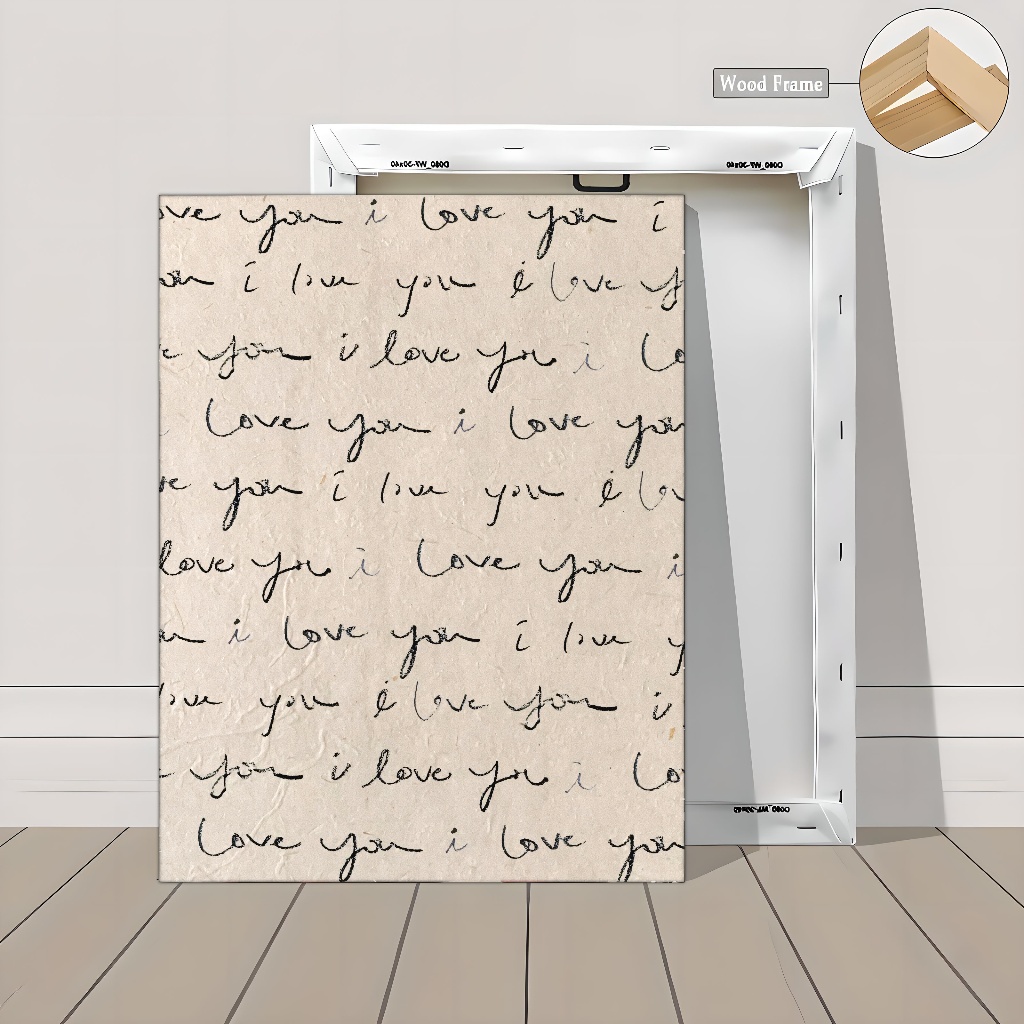 Wood Frame
ove you i love you i
ou i love you i love y
e you i love you i lo
love you i love you
ve you i love you i lov
love you i love you i
ou i love you i love y
love you i love you i
you i love you i lo
love you i love you